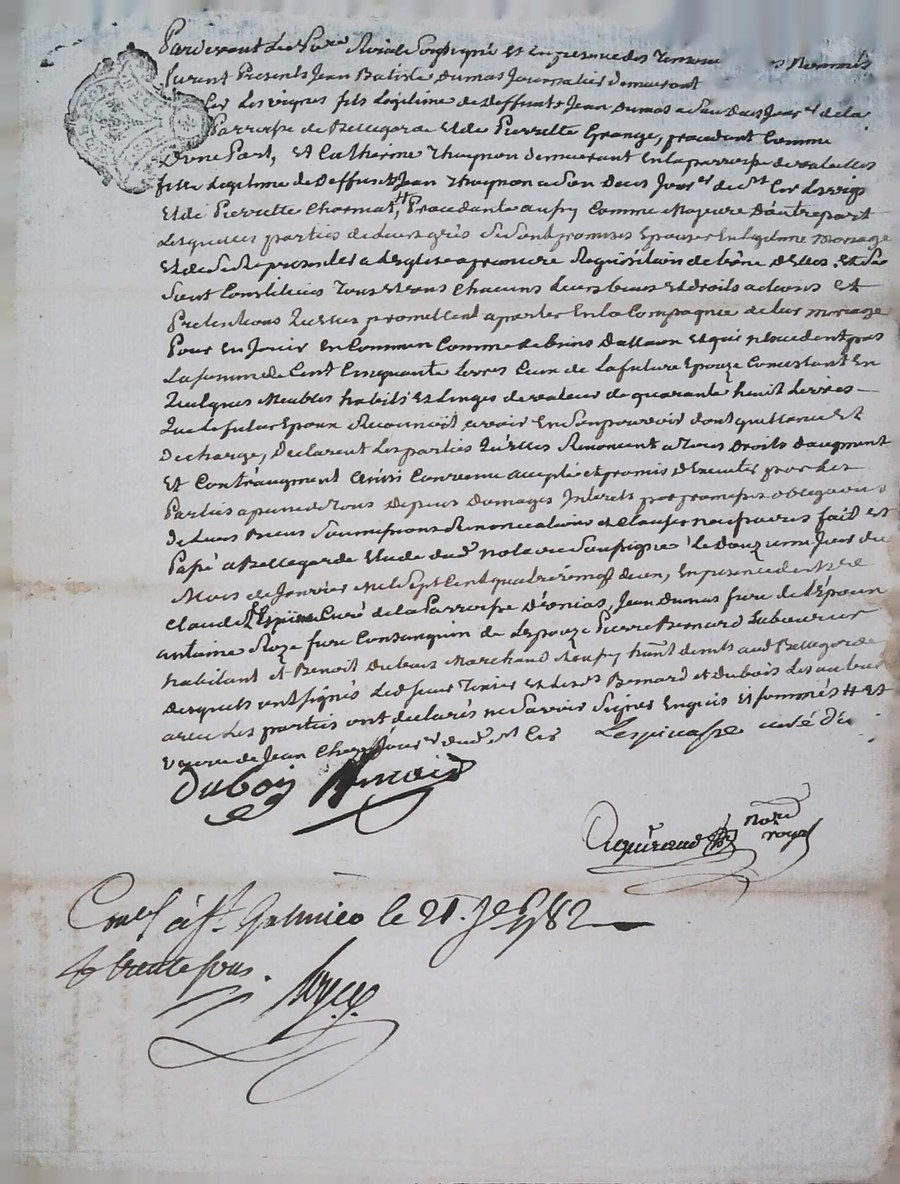 Pardevant Le No.re Roial Soussigné Et En presence des Temoins nommés
furent Presents Jean Batiste Dumas Journalier demeurant
Les vignes fils Legitime de Deffunt Jean Dumas a Son Deces Jour.er de la
Parroisse de Bellegarde Et de Pierrette Grange, procedant Comme
d'une Part, Et Catherine Thuynon demeurant En la parroisse de
fille Legitime de Deffunt Jean Thuynon a Son Deces Jour.er de St
Et de Pierrette Charmat, Procedante aussy Comme Majeure D'autre part
Lesquelles parties de Leurs grés Se Sont promises Epouser En Legitime mariage
Et de Se Se presenter a L'eglise a premiere Requisition de L'une D'elles. Et Se
Sont Constitués Tous Et uns Chacuns Leurs biens Et droits actions Et
Pretentions Qu'elles promettent aporter En La Compagnie de leur mariage
Pour En Jouir En Commun Comme de biens et qui n'excedent pas
La somme de Cent Cinquante Livres Ceux de La future Epouze Consistant En
Quelques Meubles habits Et Linges de valeur de quarante huit Livres
Que Le futur Epoux Reconnoit avoir En Son pouvoir dont quittance Et
Decharge, Declarent Les parties Qu'elles Renoncent a Tous Droits d'augment
Et Contraugment Ainsi Convenu accepté et promis D'executer par Les
Parties a peine de Tous Depens Domages Interets par promesses obligations
de Leurs Biens Soumissions Renonciations et Clauses fait Et
Passé a Bellegarde Etude dud. notaire Soussigné Le Douzieme Jour du
Mois de Janvier Mil Sept Cent quatre vingt deux, En presence de M.re
Claude Lespinasse Curé de la Parroisse D'onias, Jean Dumas frere de L'Epoux
antoine Roze frere Consanguin de Lepouze Pierre Bernard Laboureur
habitant Et Benoit Dubois Marchand aud. Bellegarde
Desquels ont signés Led. Sieur Et Les d.s Bernard et Dubois Les autres
avec Les parties ont declarés ne Savoir Signer Enquis Et sommés Et
de Jean Jour.er dud. St
Lespinasse curé d'o
Dubois Bernard
not.re royal
Con.lé à St. Galmier le 21. Je 1782
R trente sous.